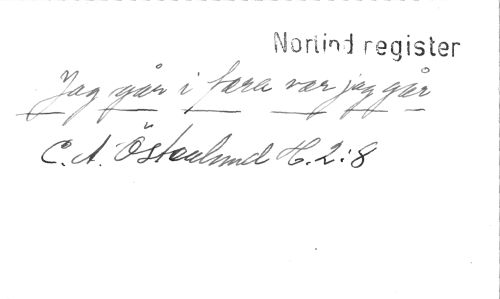 Norlind register
Jag går i fara var jag går
C. A. Österlund H. 2:8